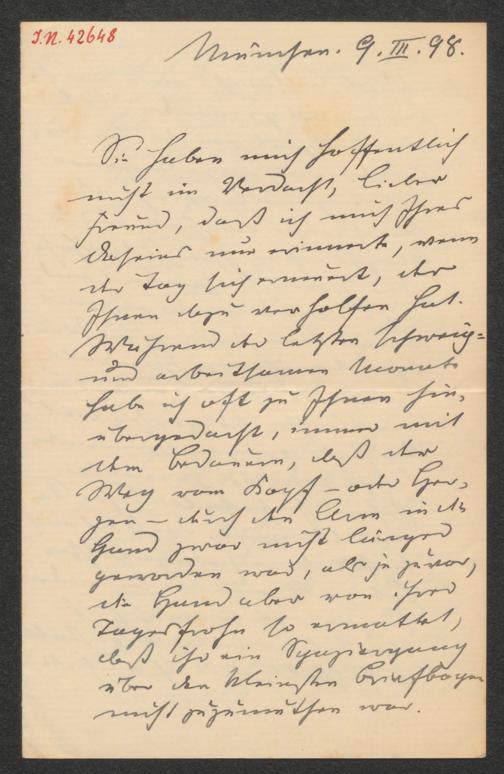 I.N. 42648
München. 9. III. 98.
Sie haben mich hoffentlich
nicht im Verdacht, lieber
Freund, daß ich mich Ihres
Daseins nur erinnerte, wenn
der Tag sich erneuert, der
Ihnen dazu verholfen hat.
Während der letzten schweig-
und arbeitsamen Monate
habe ich oft zu Ihnen hin-
übergedacht, immer mit
dem Bedauern, daß der
Weg vom Kopf – oder Her-
zen – durch den Arm in die
Hand zwar nicht länger
geworden war, als je zuvor,
die Hand aber von ihrer
Tagesfrohn so ermattet,
daß ihr ein Spaziergang
über den kleinsten Briefbogen
nicht zuzumuthen war.